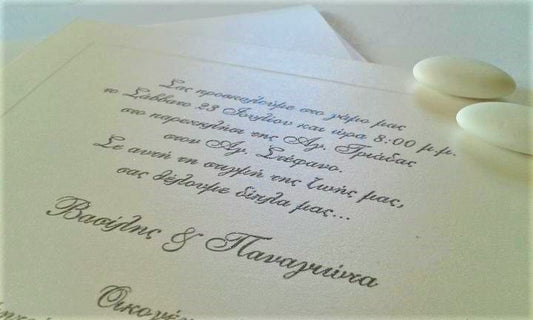 Σας προσκαλούμε στο γάμο μας
το Σάββατο 23 Ιουλίου και ώρα 8:00 μ.μ.
στο παρεκκλήσι της Αγ. Τριάδας
στον Αγ. Στέφανο.
Σε αυτή τη στιγμή της ζωής μας,
σας θέλουμε δίπλα μας...
Βασίλης & Παναγιώτα